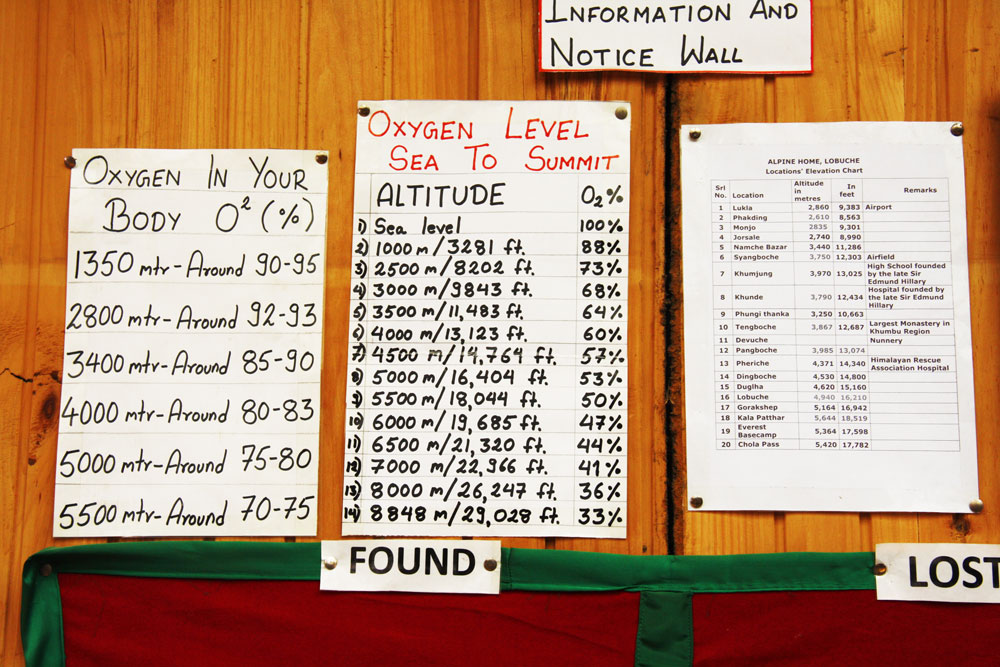 INFORMATION AND
NOTICE WALL
OXYGEN IN YOUR
BODY O² (%)
1350 mtr-Around 90-95
2800 mtr-Around 92-93
3400 mtr-Around 85-90
4000 mtr-Around 80-83
5000 mtr-Around 75-80
5500 mtr-Around 70-75
OXYGEN LEVEL
SEA TO SUMMIT
ALTITUDE O₂%
1) Sea level 100%
2) 1000 m/3281 ft. 88%
3) 2500 m/8202 ft. 73%
4) 3000 m/9843 ft. 68%
5) 3500 m/11,483 ft. 64%
6) 4000 m/13,123 ft. 60%
7) 4500 m/14,764 ft. 57%
8) 5000 m/16,404 ft. 53%
9) 5500 m/18,044 ft. 50%
10) 6000 m/19,685 ft. 47%
11) 6500 m/21,320 ft. 44%
12) 7000 m/22,966 ft. 41%
13) 8000 m/26,247 ft. 36%
14) 8848 m/29,028 ft. 33%
ALPINE HOME, LOBUCHE
Locations' Elevation Chart
Srl No. Location Altitude in metres In feet Remarks
1 Lukla 2,860 9,383 Airport
2 Phakding 2,610 8,563
3 Monjo 2835 9,301
4 Jorsale 2,740 8,990
5 Namche Bazar 3,440 11,286
6 Syangboche 3,750 12,303 Airfield
7 Khumjung 3,970 13,025 High School founded by the late Sir Edmund Hillary
8 Khunde 3,790 12,434 Hospital founded by the late Sir Edmund Hillary
9 Phungi thanka 3,250 10,663
10 Tengboche 3,867 12,687 Largest Monastery in Khumbu Region
11 Devuche Nunnery
12 Pangboche 3,985 13,074
13 Pheriche 4,371 14,340 Himalayan Rescue Association Hospital
14 Dingboche 4,530 14,800
15 Duglha 4,620 15,160
16 Lobuche 4,940 16,210
17 Gorakshep 5,164 16,942
18 Kala Patthar 5,644 18,519
19 Everest Basecamp 5,364 17,598
20 Chola Pass 5,420 17,782
FOUND
LOST